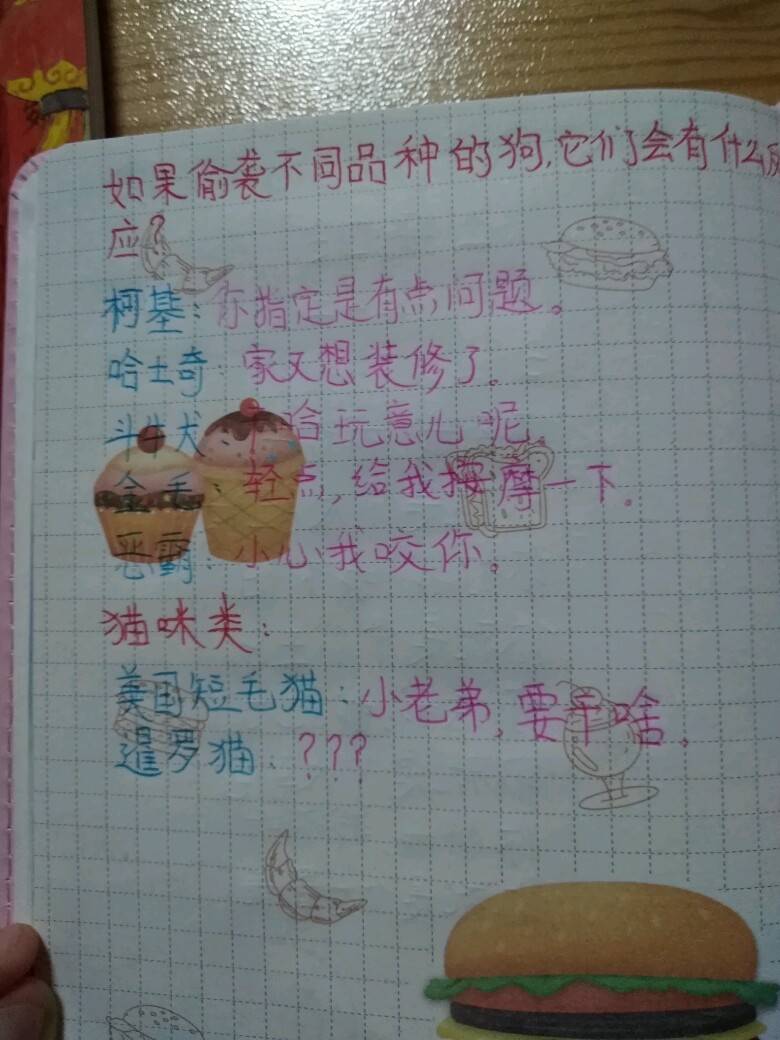 如果偷袭不同品种的狗,它们会有什么反
应?
柯基:你指定是有点问题。
哈士奇:家又想装修了。
斗牛犬:干哈玩意儿呢。
金毛:轻点,给我按摩一下。
恶霸:小心我咬你。
猫咪类:
美国短毛猫:小老弟,要干啥。
暹罗猫:???